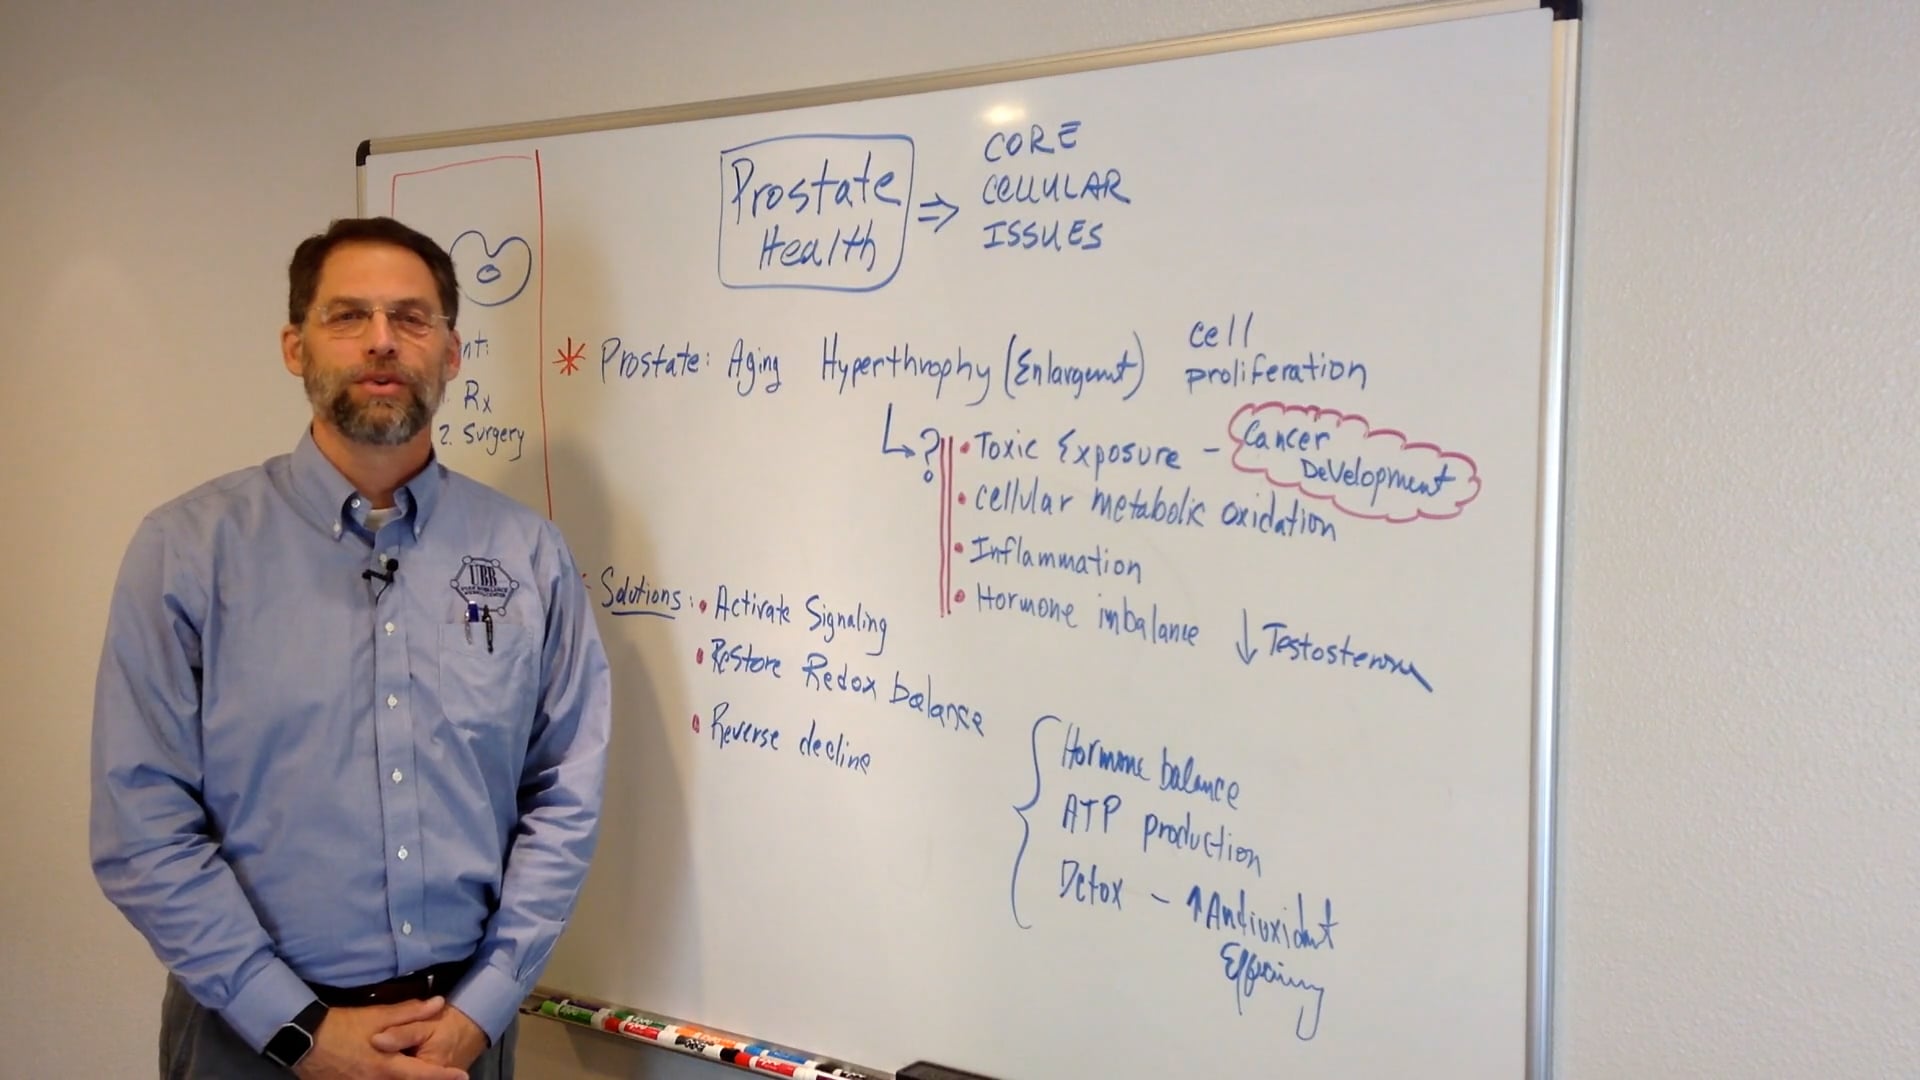 Prostate
Health
⇒
CORE
CELLULAR
ISSUES
nt:
Rx
2. Surgery
* Prostate: Aging Hyperthrophy (Enlargemnt) cell
proliferation
?
• Toxic Exposure - Cancer
Development
• cellular metabolic oxidation
• Inflammation
• Hormone imbalance ↓ Testosterone
Solutions: • Activate Signaling
• Restore Redox balance
• Reverse decline
Hormone balance
ATP production
Detox - ↑ Antioxidant
UBB